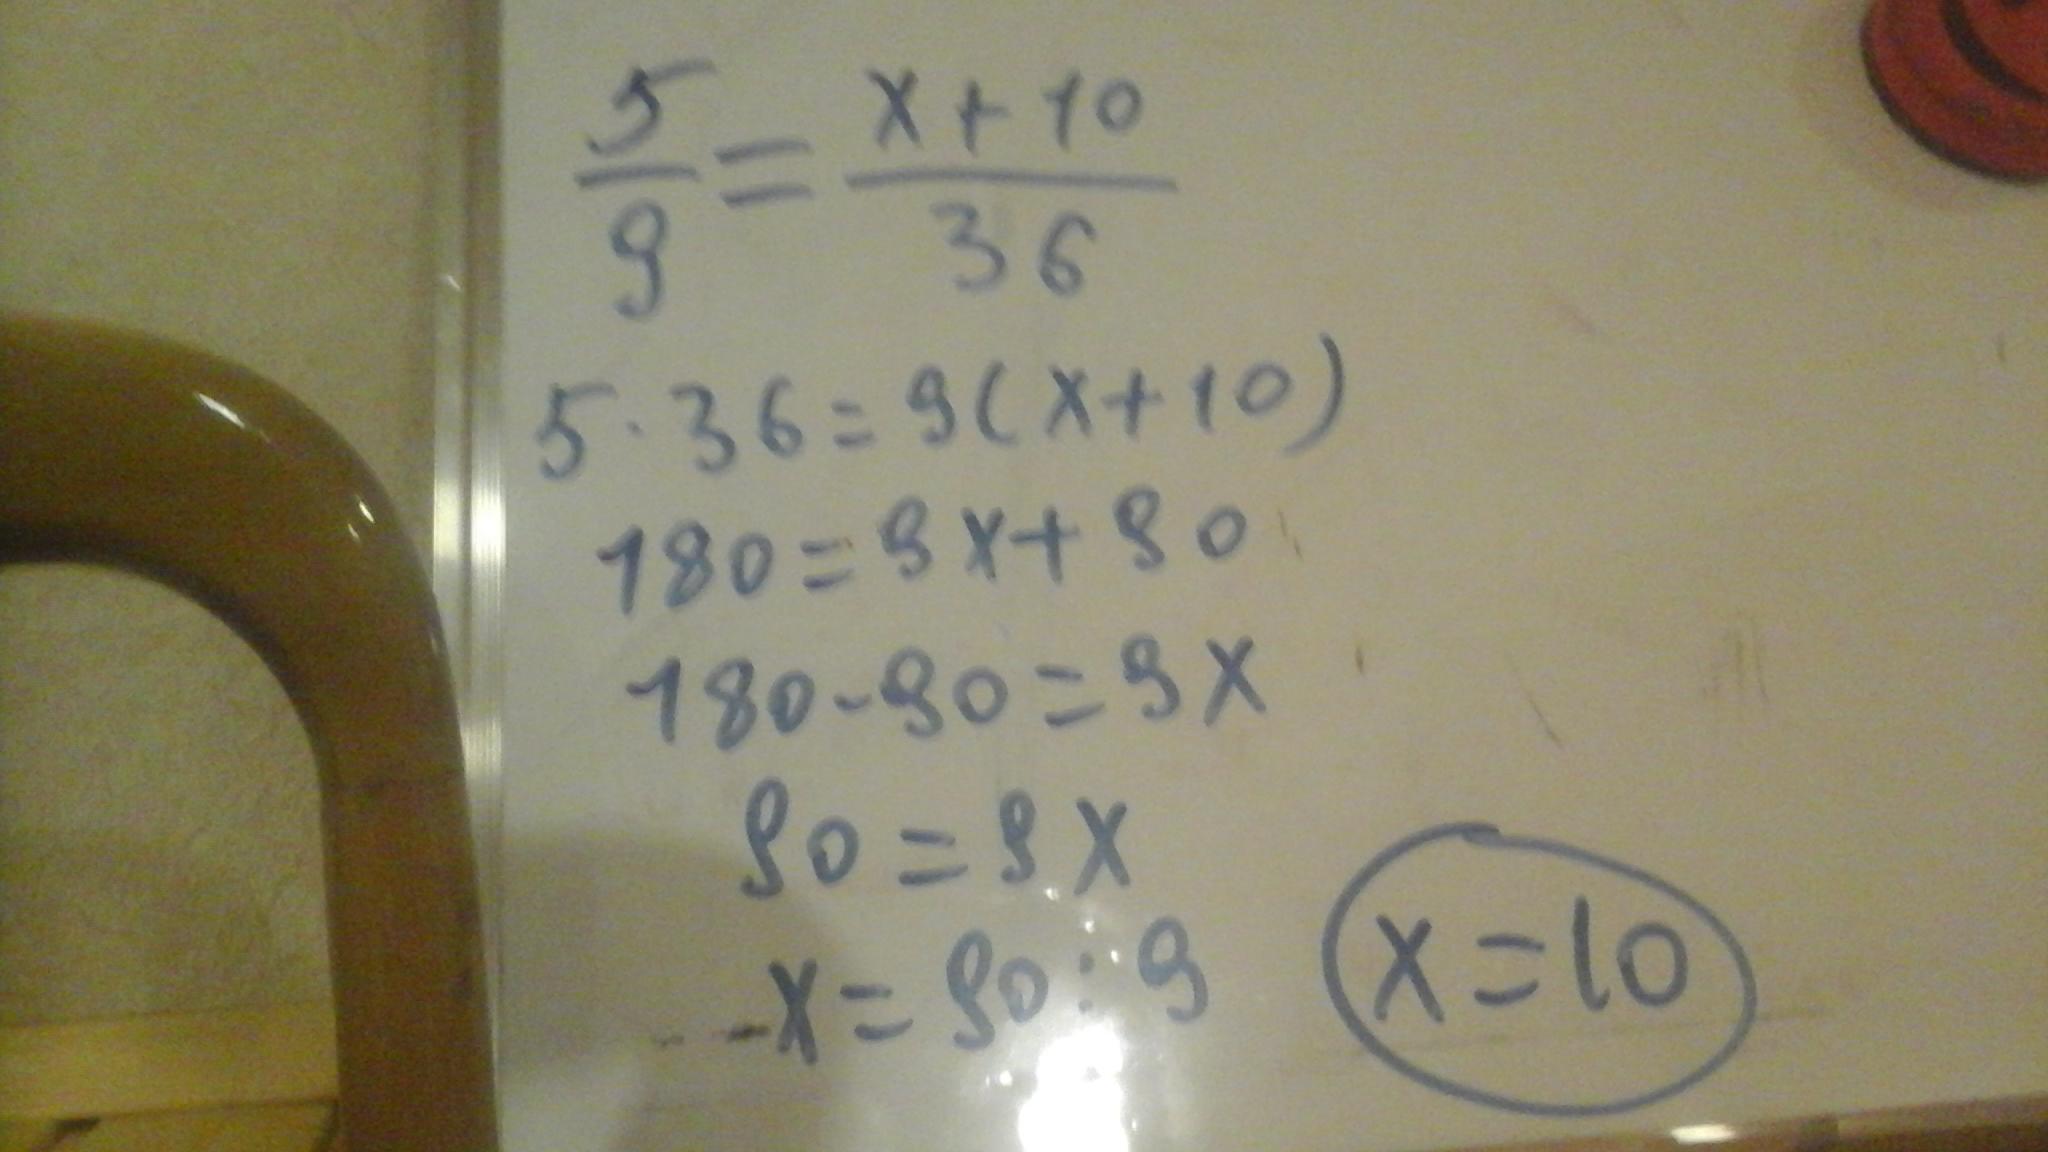 5/9 = x+10/36
5·36=9(x+10)
180=9x+90
180-90=9x
90=9x
x=90:9
x=10